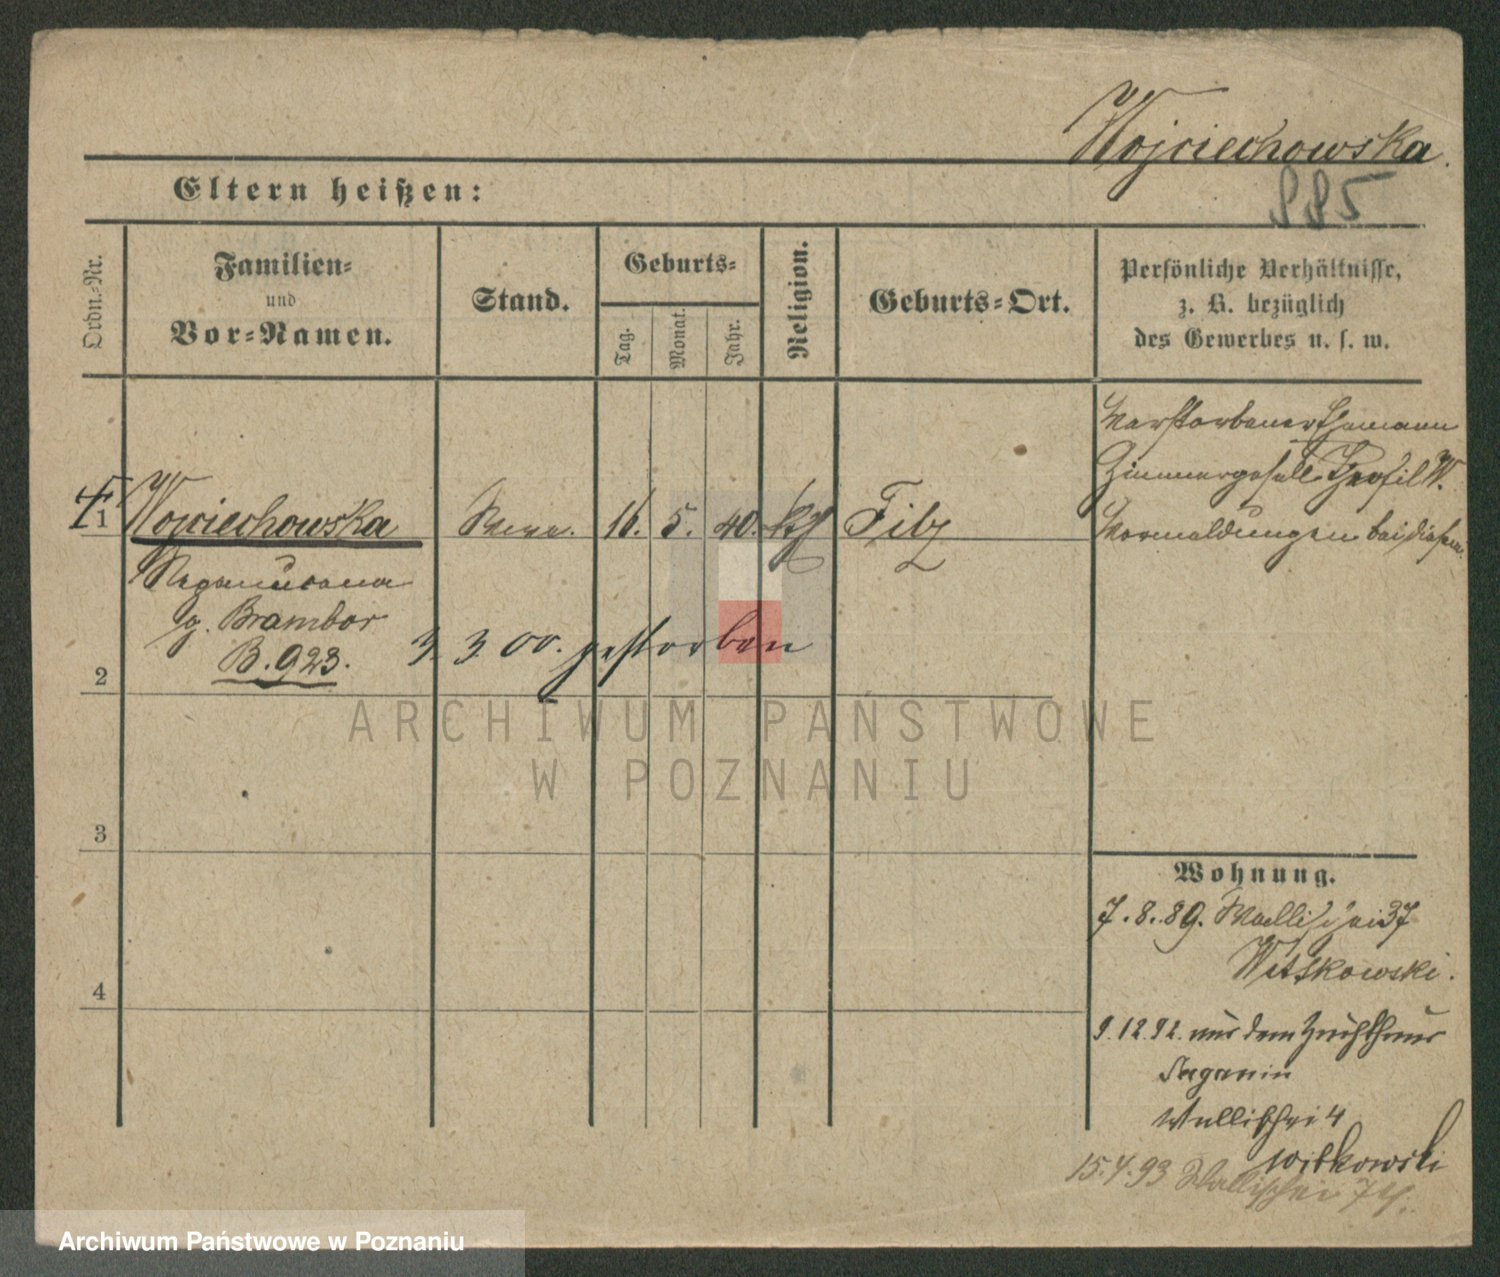 Wojciechowska.
885
Eltern heißen:
Ordn.-Nr.
Familien-
und
Vor-Namen.
Stand.
Geburts-
Tag.
Monat.
Jahr.
Religion.
Geburts-Ort.
Persönliche Verhältnisse,
z. B. bezüglich
des Gewerbes u. s. w.
Verstorbener Ehemann
Zimmergesell W.
Vormeldungen bei diesem
1
Wojciechowska
16. 5. 40. kth
g. Brambor
B. 923.
3 3 00. gestorben
2
3
4
Wohnung.
7. 8. 89. Wallischei 37
Witkowski.
9. 12. 92. aus dem Zuchthaus
Wallischei 4
Witkowski
15. 4. 93 Wallischei 74.
ARCHIWUM PAŃSTWOWE
W POZNANIU
Archiwum Państwowe w Poznaniu